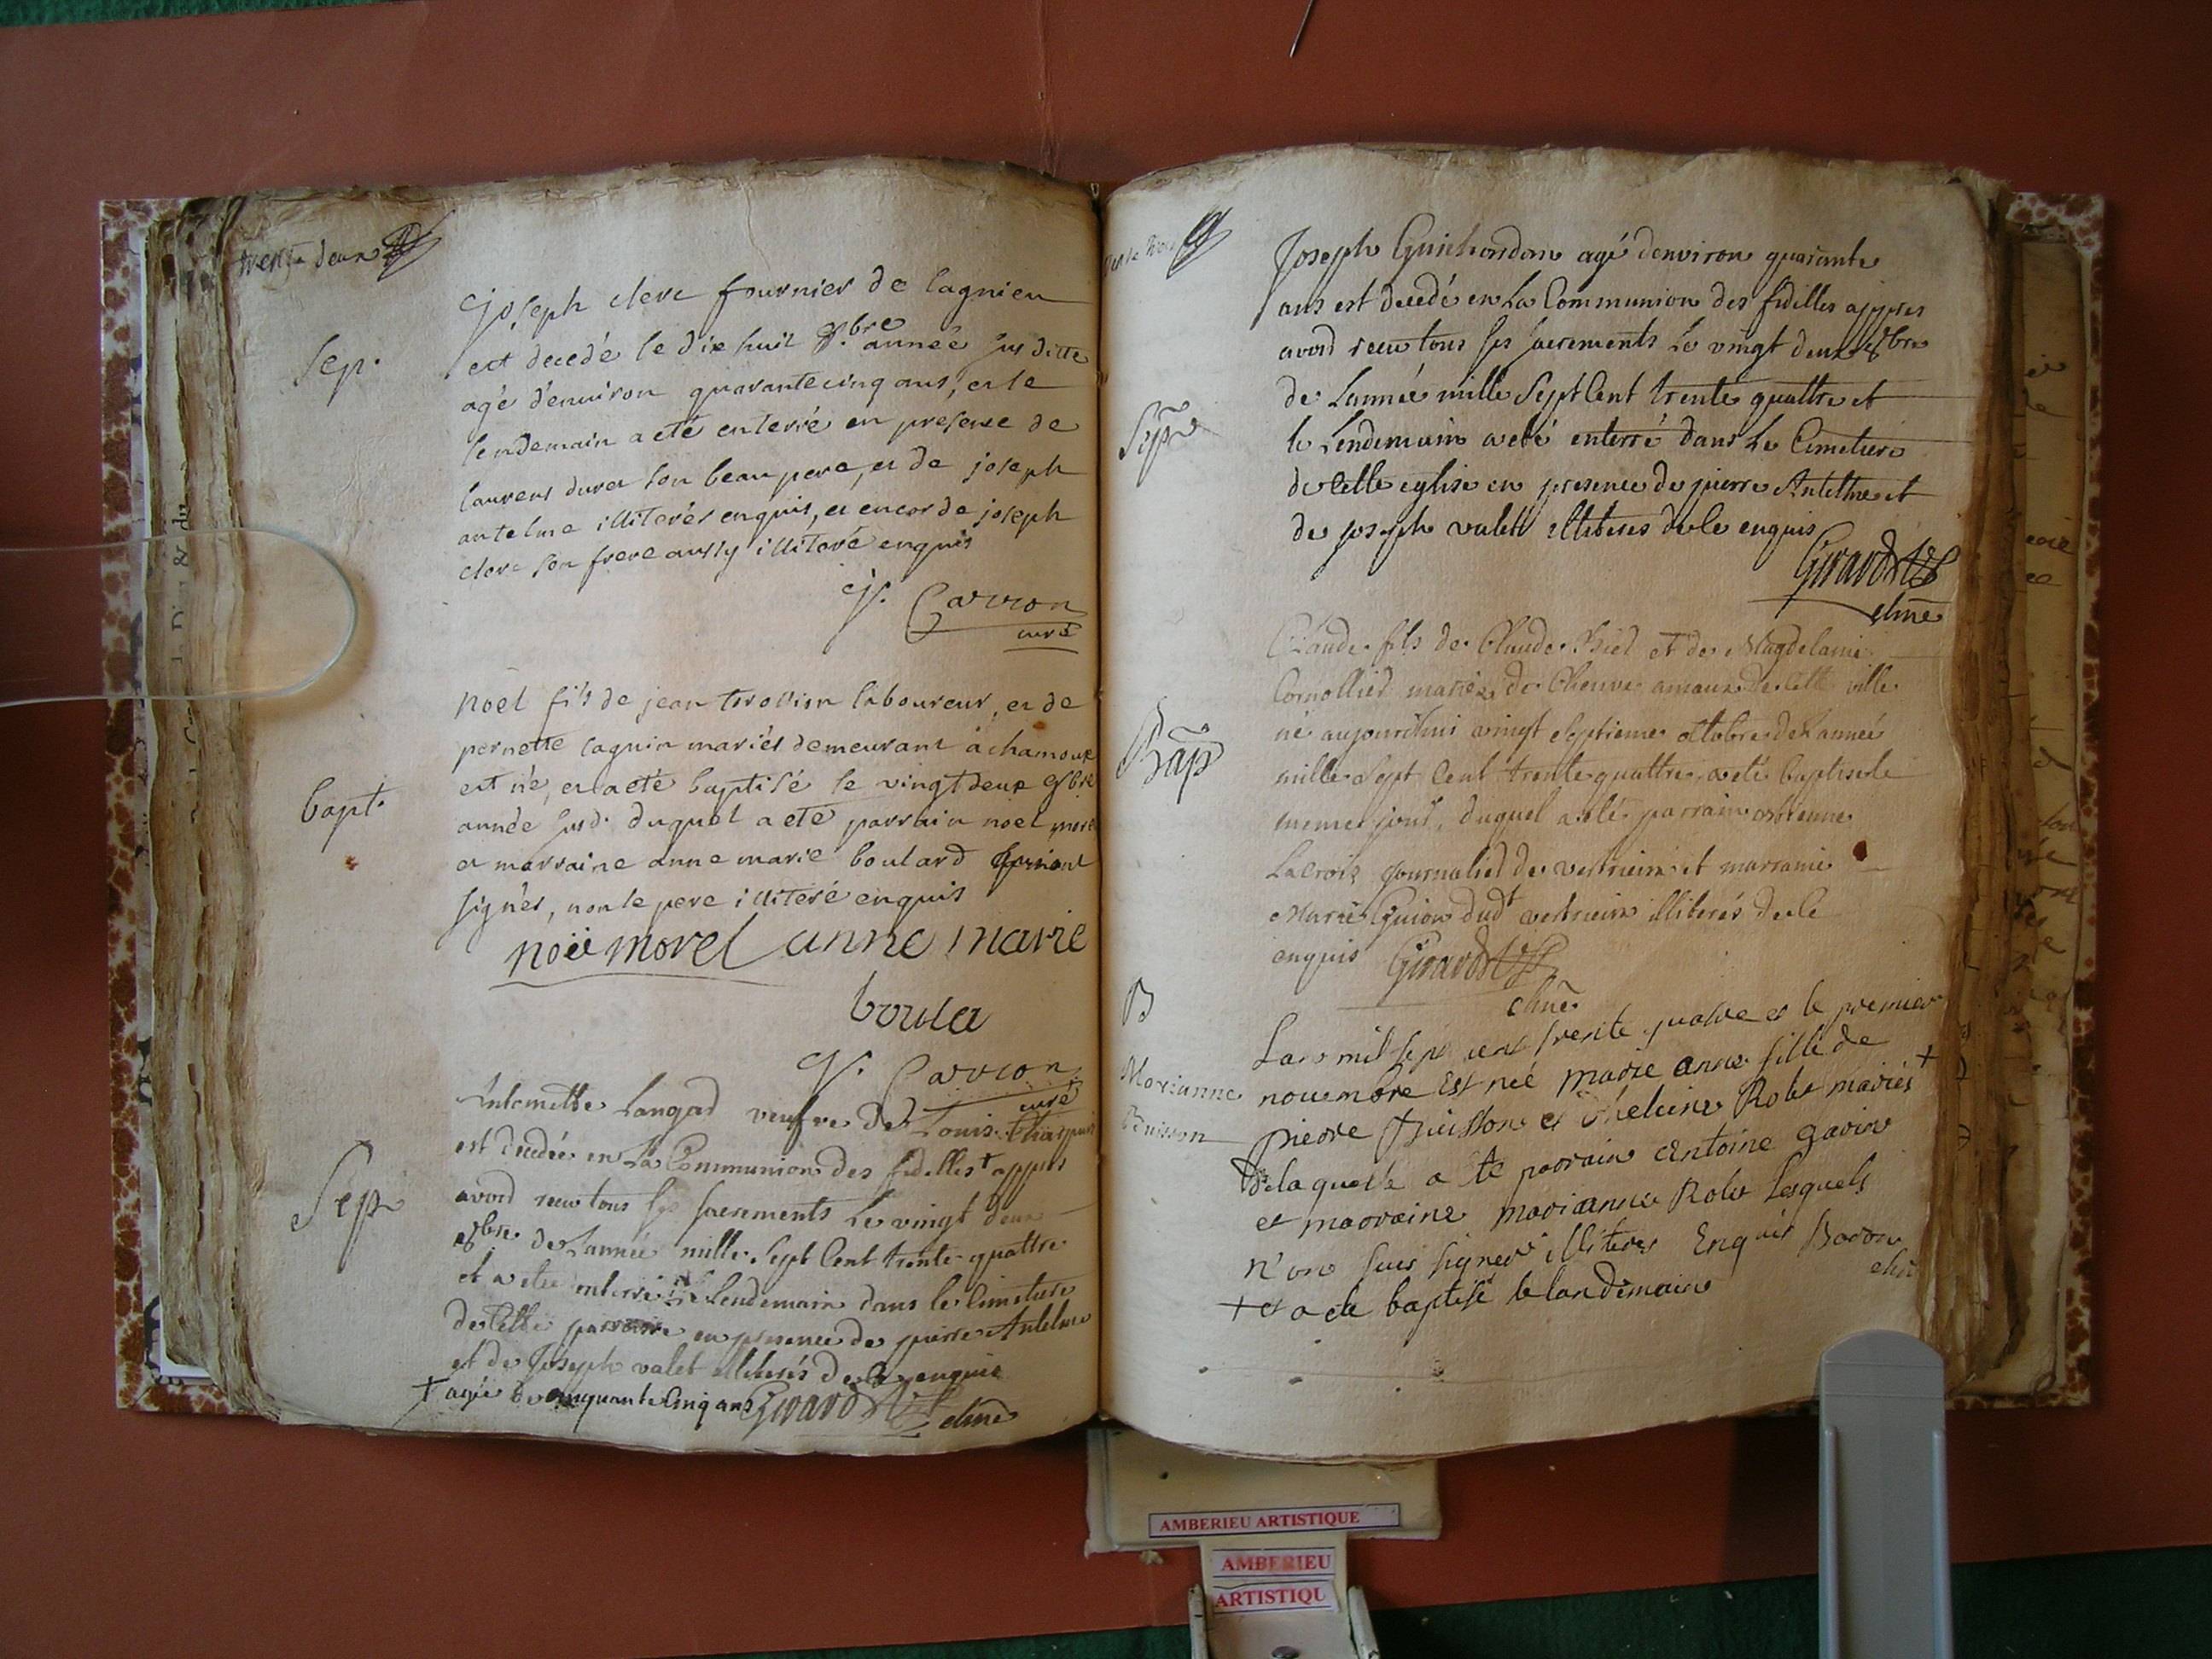 trente deux
Sep.
Joseph clerc fournier de lagnieu
est decedé le dix huit 8.bre année sus ditte
agé d'environ quarante cinq ans, et le
lendemain a eté enterré en presence de
laurens duret son beau pere, et de joseph
antelme illiterés enquis, et encor de joseph
clerc son frere aussy illiteré enquis
J. Carron
curé
bapt.
noël fils de jean laboureur, et de
pernette mariés demeurant à chamoux
est né, et a eté baptisé le vingt deux 8bre
année susd. duquel a eté parrain noël morel
et marraine anne marie boulard
signés, non le pere illiteré enquis
noë morel anne marie
boula
J. Carron
curé
Sep
Langad veufve de Louis
est decedée en La Communion des fidelles + appres
avoid receu tous ses sacrements Le vingt deux
8bre de Lannée mille Sept Cent trente quattre
et a etee enterrée le Lendemain dans le Cimetiere
de Cette paroisse en presence de pierre Antelme
et de Joseph valet illiterés de ce enquis
+ agée de cinquante Cinq ans Girard
Joseph Guichondon agé denviron quarante
ans est decedé en La Communion des fidelles appres
avoid receu tous ses sacrements Le vingt deux 8bre
de Lannée mille Sept Cent trente quattre et
Sep
le Lendemain a eté enterré dans Le Cimetiere
de Cette eglise en presence de pierre Antelme et
de joseph valet illiterés de ce enquis
Girard
Claude fils de Claude et de Magdelaine
mariés de de Cette ville
né aujourdhui vingt Septieme octobre de Lannée
Bap
mille Sept Cent trente quattre a eté baptisé le
meme jour, duquel a eté parrain estienne
Lacroix journalied de et marraine
Marie Guion dud illiterés de ce
enquis Girard
B
Marianne
Buisson
Lan mil sept cent trente quatre et le premier
nouembre Est née marie anne fille de
pierre Buisson et heleine Robet mariés +
de laquelle a ete parrain Antoine gavin
et marraine marianne Robet Lesquels
n'ons sceu signer illiteres Enquis
+ et a ete baptisé le landemain
AMBERIEU ARTISTIQUE
AMBERIEU
ARTISTIQU